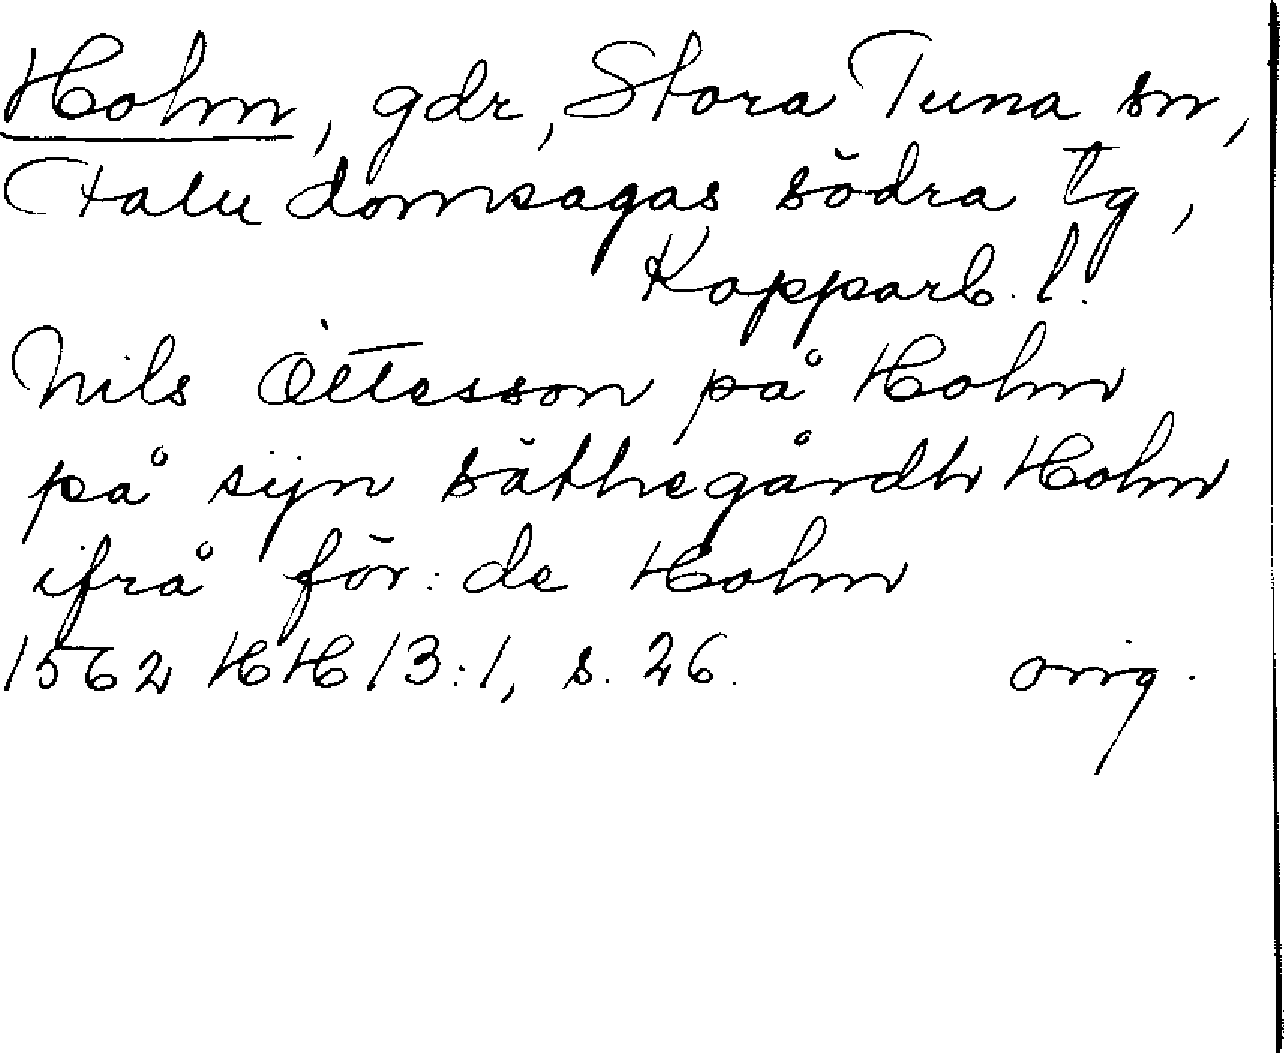 Holm, gdr, Stora Tuna sn,
Falu domsagas södra tg,
Kopparb. l.
Nils Ottesson på Holm
på sijn säthegårdh Holm
ifrå för: de Holm
1562 HH 13:1, s. 26. orig.